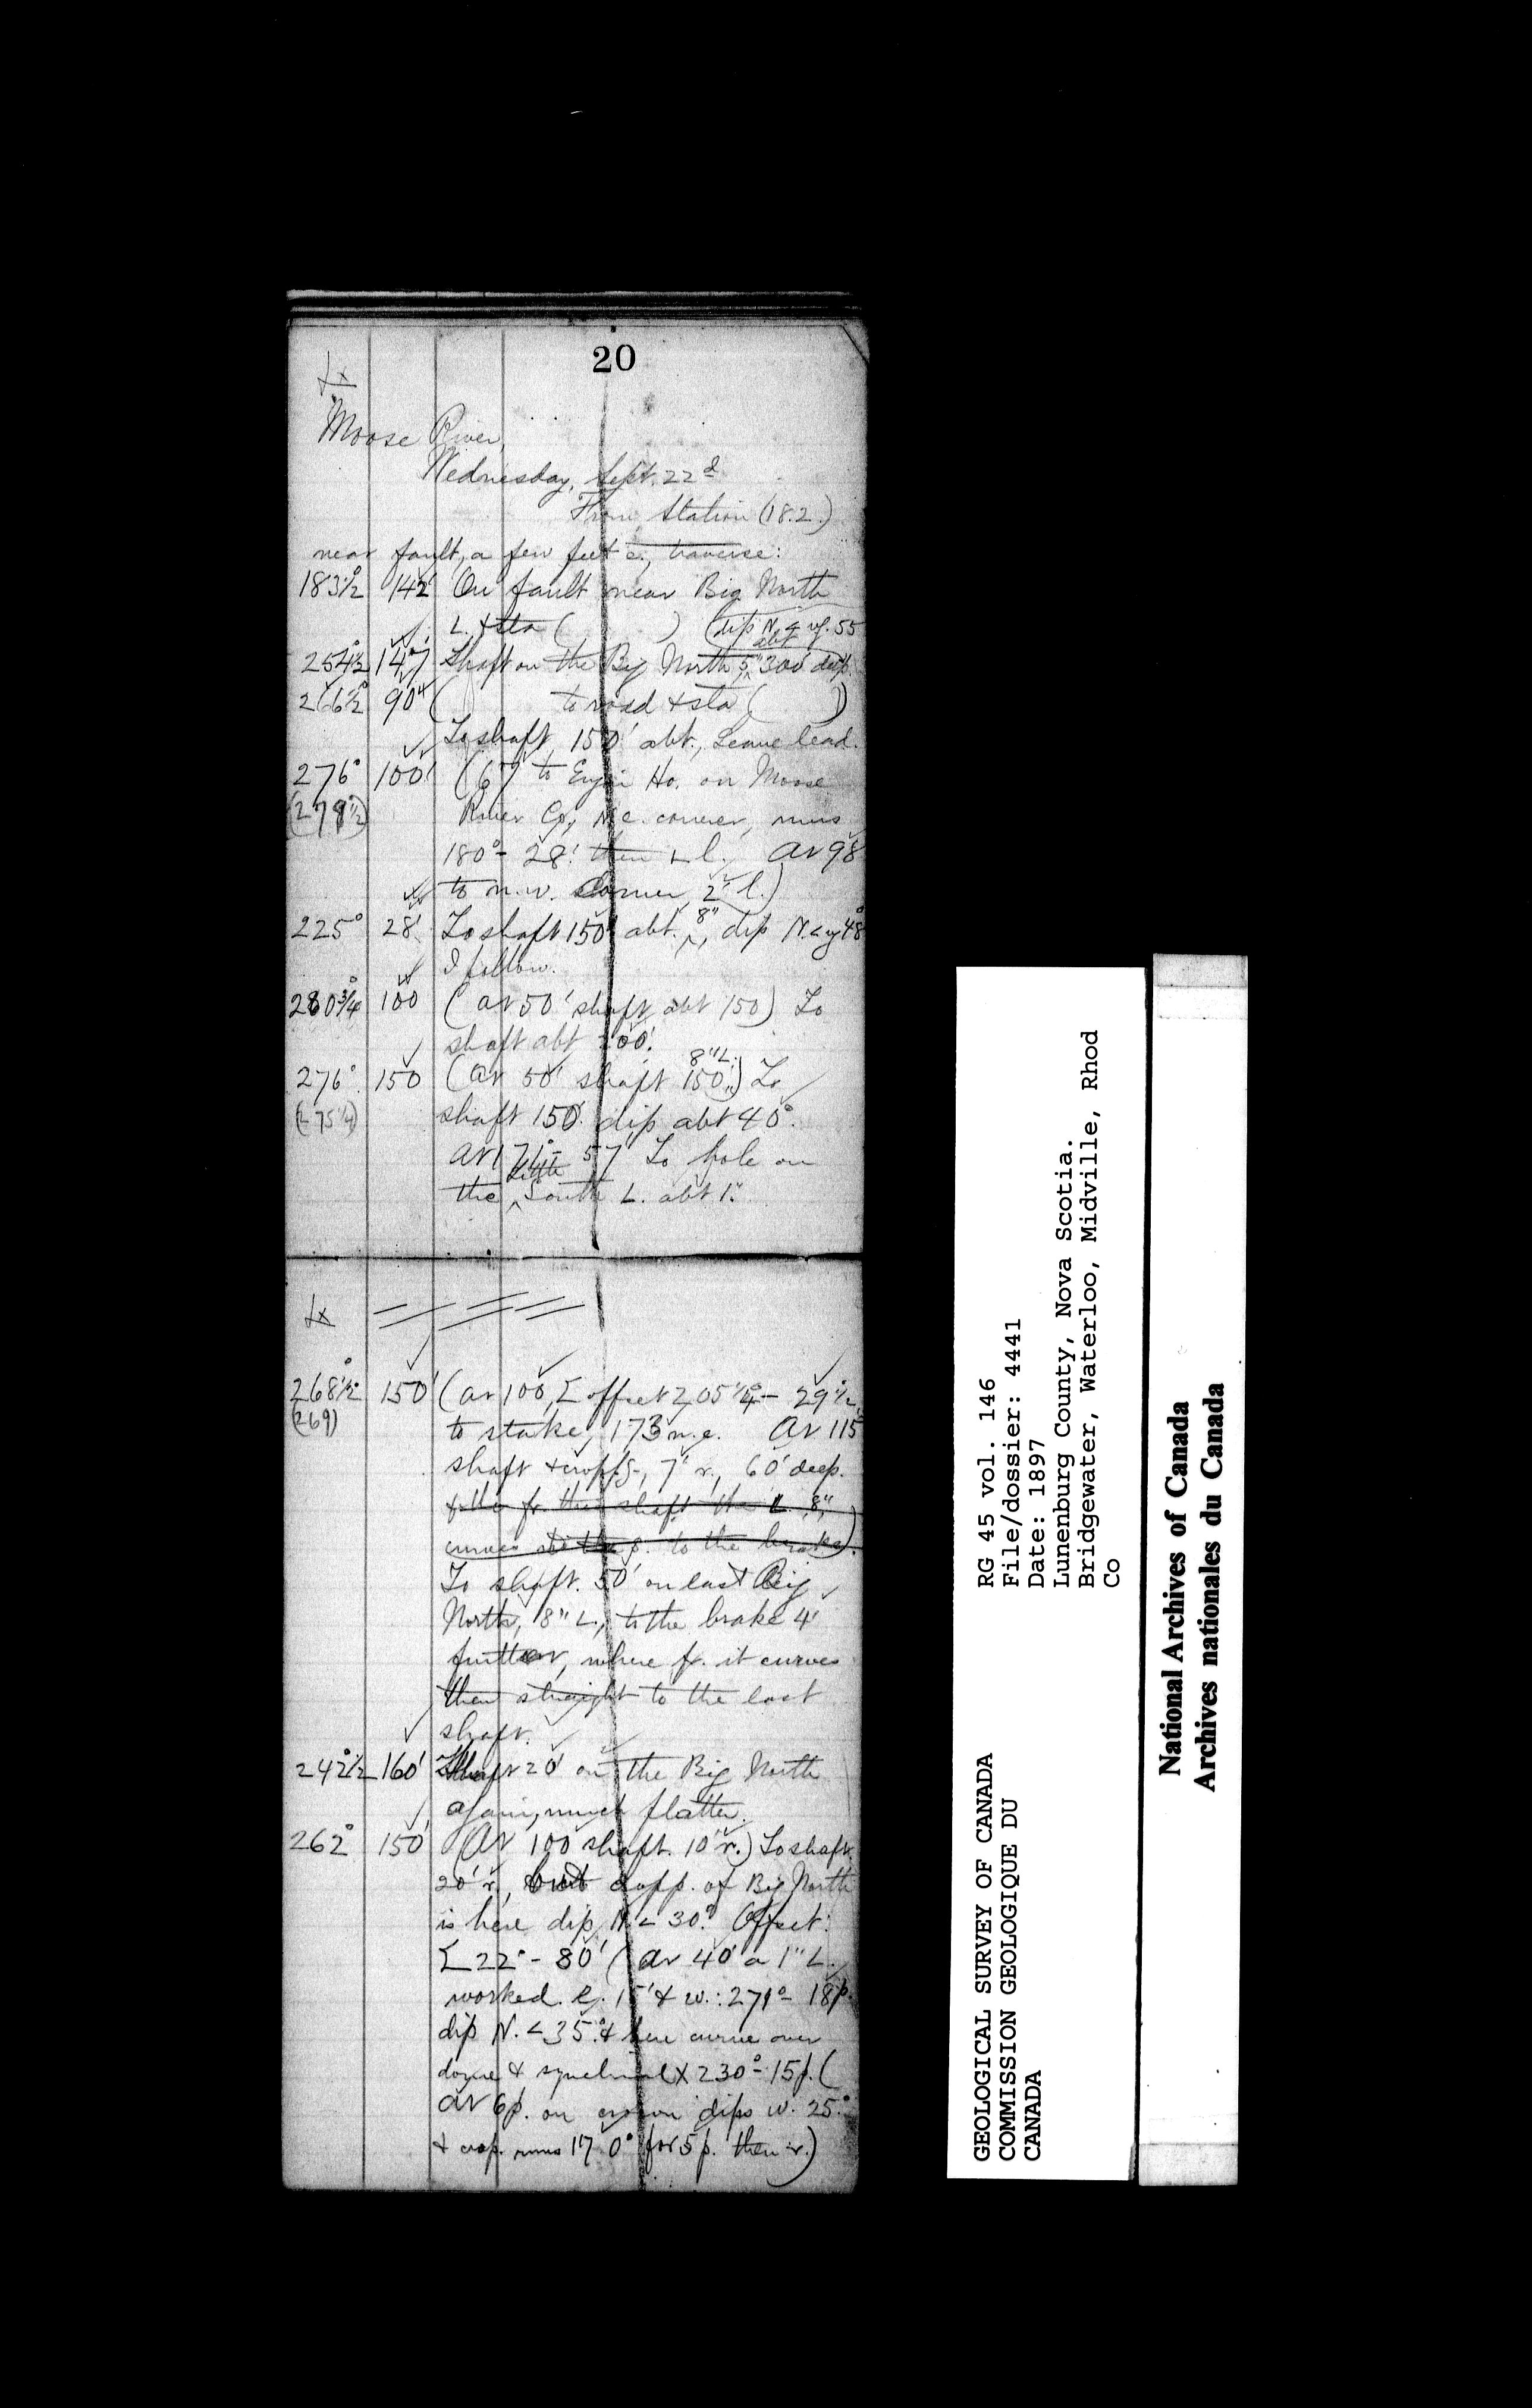 20
Moose River,
Wednesday, Sept. 22d
From Station (18.2.)
near fault, a few feet e., traverse:
183½° 142' On fault near Big North
L. & sta ( ) (dip N. < of 55
254½° 147' Shaft on the Big North 5" abt 300' deep.
266½° 90' ( to road & sta ( ))
To shaft 150' abt., Leave lead.
276° 100' (67' to Engin Ho. on Moose
(279½) River Co., n.e. corner, runs
180° - 28' then ∟ l. At 98'
to n.w. corner, 2' l.)
225° 28' To shaft 150' abt. 8", dip N. < of 48°
I follow.
280¾° 100 (at 50' shaft abt 150) To
shaft abt 200'.
276° 150 (at 50' shaft 150', 8" L.) To
(275¼) shaft 150' dip abt 40°.
At 171° - 57' To hole on
the Little South L. abt 1".
268½° 150' (at 100, Σ offset 205¼° - 29½'
(269) to stake, 173 n.e. At 115
shaft & cropp'g, 7' r., 60' deep.
fr. the shaft the L. 8",
curves to the brake).
To shaft. 50' on last Big
North, 8" L., to the brake 4'
further, where fr. it curves
then straight to the last
shaft.
242½° 160' Shaft 20' on the Big North
again, much flatter.
262° 150' (At 100 shaft. 10' r.) To shaft
20' r., but dopp. of Big North
is here dip N. < 30°. Offset:
Σ 22° - 80' (At 40' a 1" L.
worked. e. 15' & w.: 271° - 18p.
dip N. < 35°. & here curve over
dome & synclinal X 230° - 15p. (
at 6p. on crown dips w. 25°.
& crop. runs 170° for 5p. then r.)
GEOLOGICAL SURVEY OF CANADA
COMMISSION GEOLOGIQUE DU
CANADA
RG 45 vol. 146
File/dossier: 4441
Date: 1897
Lunenburg County, Nova Scotia.
Bridgewater, Waterloo, Midville, Rhod
Co
National Archives of Canada
Archives nationales du Canada